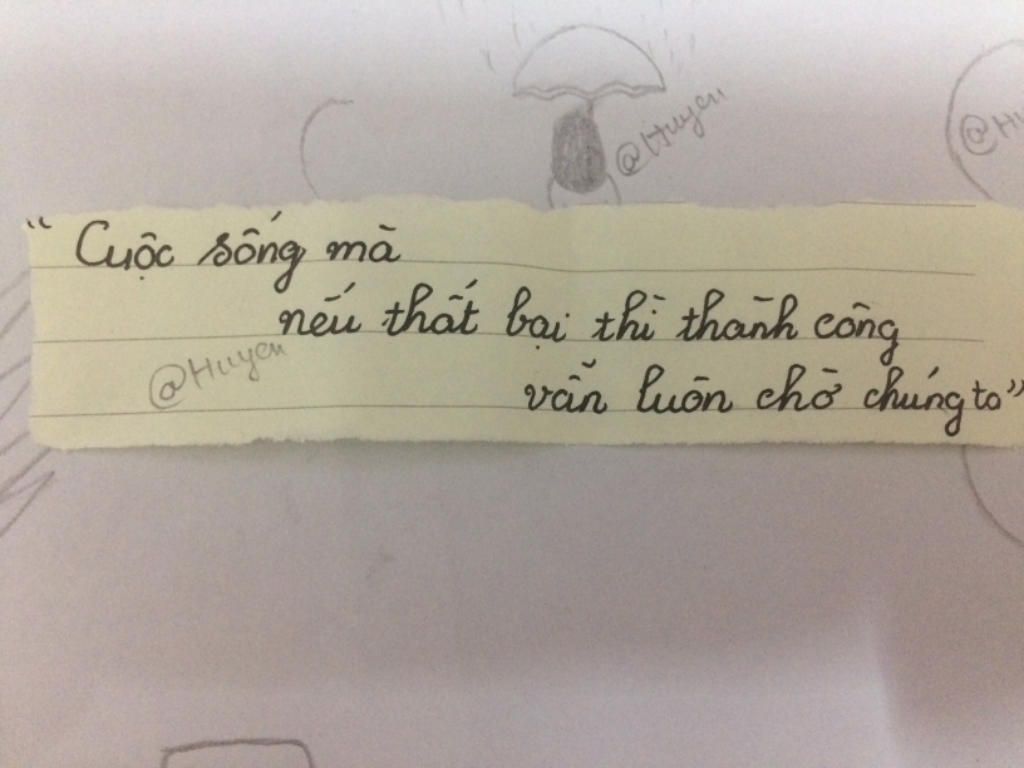 @Huyen
@Hu
“ Cuộc sống mà
nếu thất bại thì thành công
@Huyen
vẫn luôn chờ chúng ta”